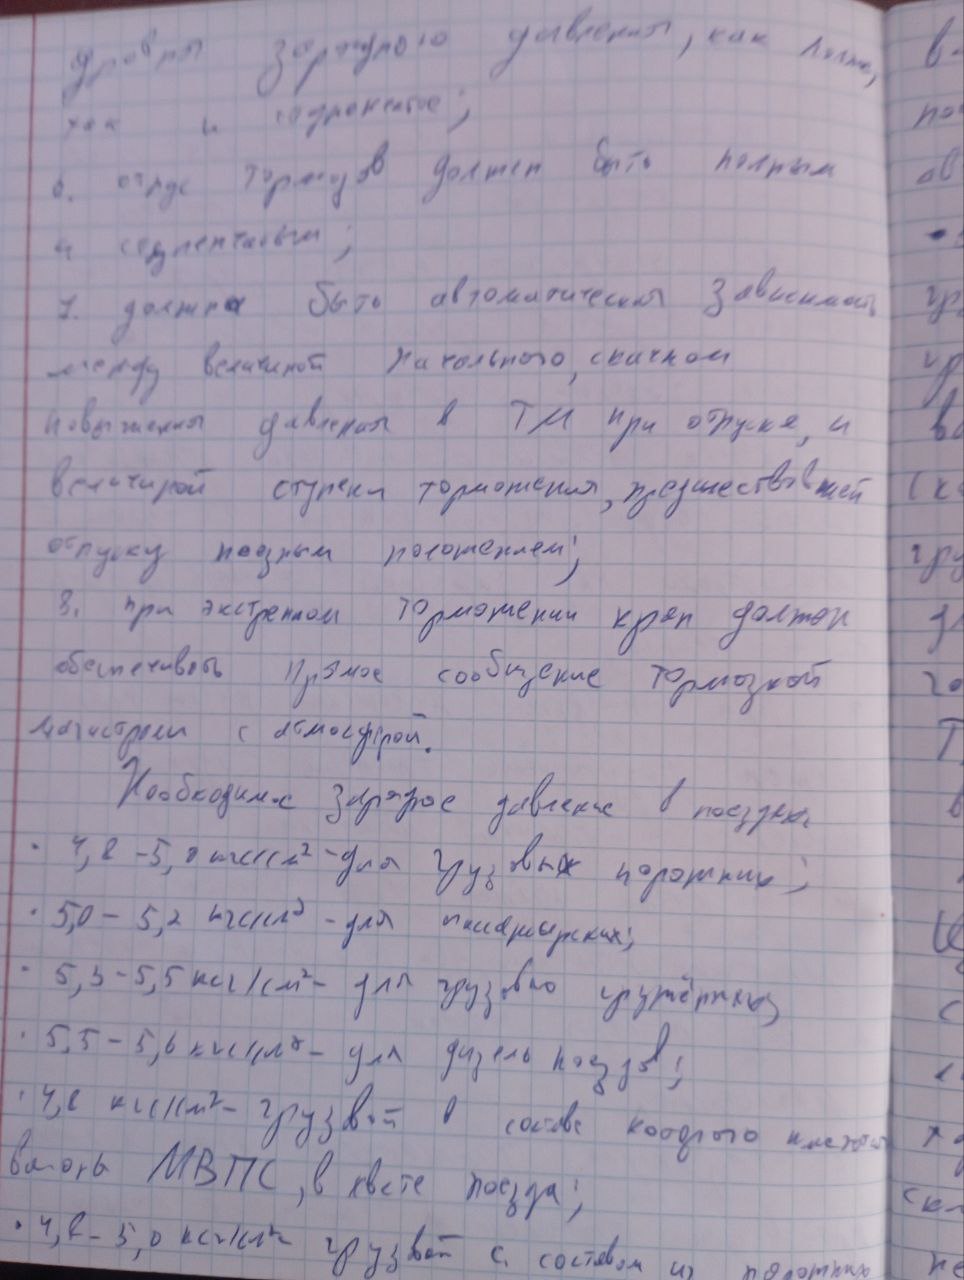 уровня зарядного давления, как полное,
так и ступенчатое;
6. отпуск тормозов должен быть полным
и ступенчатым;
7. должна быть автоматическая зависимость
между величиной начального, скачком
повышения давления в ТМ при отпуске, и
величиной ступени торможения, предшествовавшей
отпуску поездным положением;
8. при экстренном торможении кран должен
обеспечивать прямое сообщение тормозной
магистрали с атмосферой.
Необходимое зарядное давление в поездах
· 4,8 - 5,0 кгс/см² - для грузовых порожних;
· 5,0 - 5,2 кгс/см² - для пассажирских;
· 5,3 - 5,5 кгс/см² - для грузового гружёных
· 5,5 - 5,6 кгс/см² - для дизель поездов;
· 4,8 кгс/см² - грузовой в составе которого имеются
вагоны МВПС, в хвосте поезда;
· 4,8 - 5,0 кгс/см² грузовой с составом из порожних